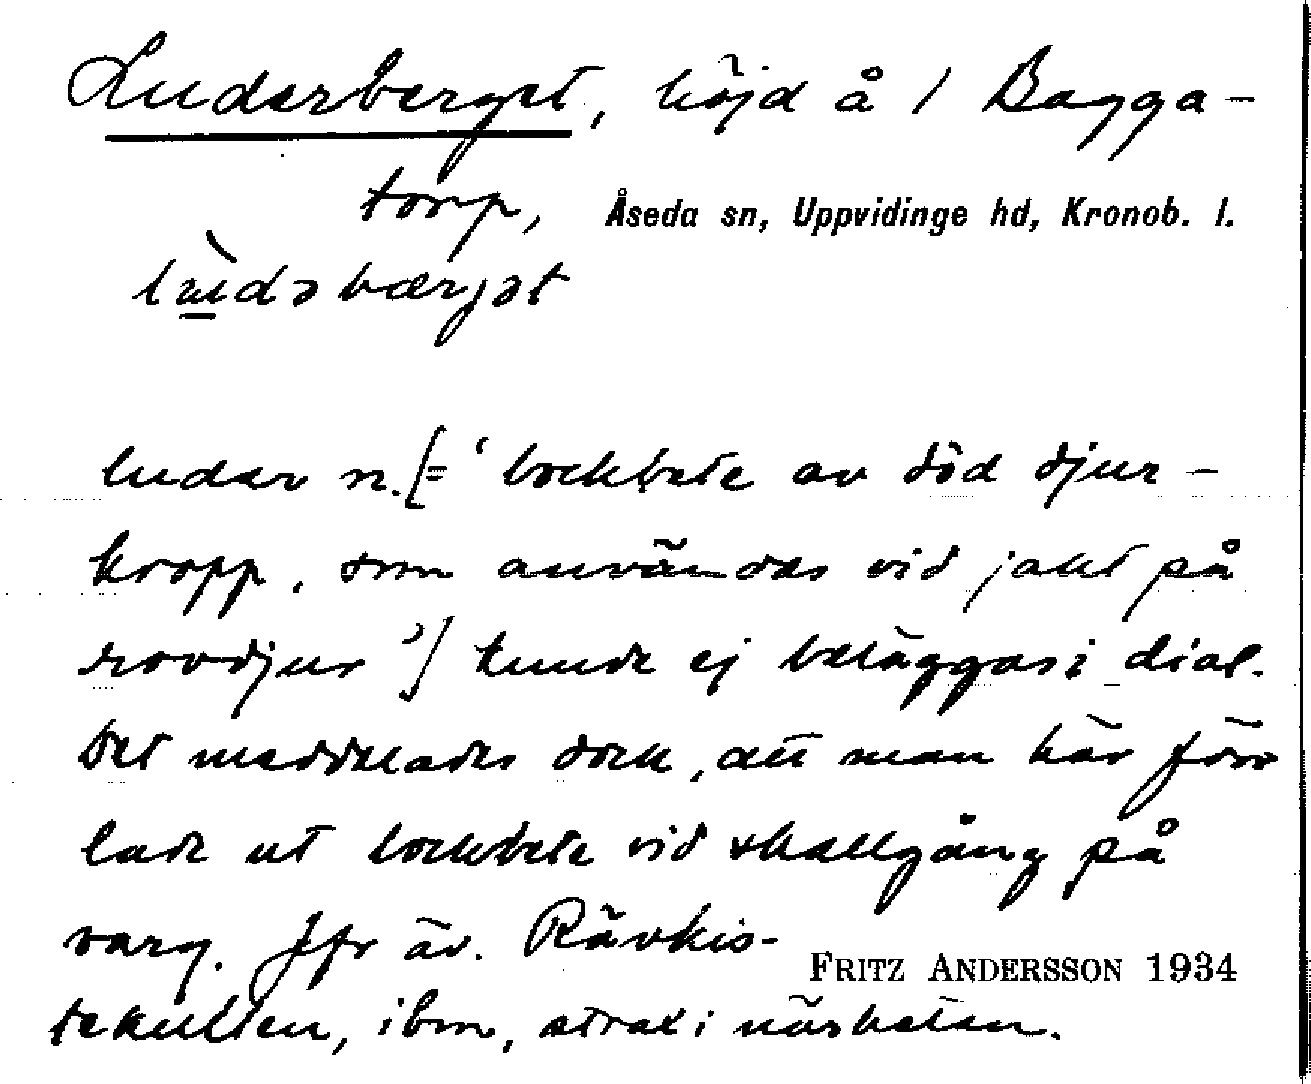 Luderberget, höjd å / Bagga-
torp, Åseda sn, Uppvidinge hd, Kronob. l.
lùdəbærjət
luder n. [= 'lockbete av död djur-
kropp, som användes vid jakt på
rovdjur'] kunde ej beläggas i dial.
Det meddelades dock, att man här förr
lade ut lockbete vid skallgång på
varg. Jfr äv. Rävkis-
tekullen, ibm, strax i närheten.
FRITZ ANDERSSON 1934